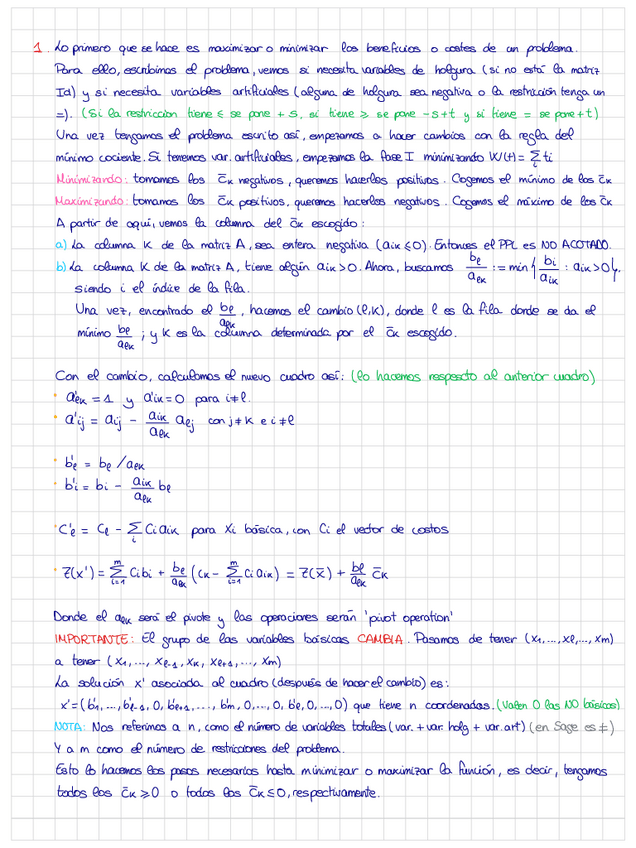 1. Lo primero que se hace es maximizar o minimizar los beneficios o costes de un problema.
Para ello, escribimos el problema, vemos si necesita variables de holgura (si no está la matriz
Id) y si necesita variables artificiales (alguna de holgura sea negativa o la restricción tenga un
=). (Si la restricción tiene ≤ se pone +s, si tiene ≥ se pone -s+t y si tiene = se pone +t)
Una vez tengamos el problema escrito así, empezamos a hacer cambios con la regla del
mínimo cociente. Si tenemos var. artificiales, empezamos la fase I minimizando W(t) = Σ_i ti
Minimizando: tomamos los c̄k negativos, queremos hacerlos positivos. Cogemos el mínimo de los c̄k
Maximizando: tomamos los c̄k positivos, queremos hacerlos negativos. Cogemos el máximo de los c̄k
A partir de aquí, vemos la columna del c̄k escogido:
a) La columna K de la matriz A, sea entera negativa (aik ≤ 0). Entonces el PPL es NO ACOTADO.
b) La columna K de la matriz A, tiene algún aik > 0. Ahora, buscamos bl/alk := min { bi/aik : aik > 0 }.
siendo i el índice de la fila.
Una vez, encontrado el bl/alk, hacemos el cambio (l,k), donde l es la fila donde se da el
mínimo bl/alk ; y k es la columna determinada por el c̄k escogido.
Con el cambio, calculamos el nuevo cuadro así: (lo hacemos respecto al anterior cuadro)
• a'lk = 1 y a'ik = 0 para i≠l.
• a'ij = aij - aik/alk alj con j≠k e i≠l
• b'l = bl/alk
• b'i = bi - aik/alk bl
• C'l = Cl - Σ_i Ci aik para Xi básica, con Ci el vector de costos
• Z(x') = Σ_{i=1}^m Cibi + bl/alk (Ck - Σ_{i=1}^m Ci aik) = Z(x̄) + bl/alk c̄k
Donde el alk será el pivote y las operaciones serán 'pivot operation'
IMPORTANTE: El grupo de las variables básicas CAMBIA. Pasamos de tener (x1,..., xl,..., xm)
a tener (x1,..., xl-1, xk, xl+1,..., xm)
La solución x' asociada al cuadro (después de hacer el cambio) es:
x'=(b'1,..., b'l-1, 0, b'l+1,..., b'm, 0,..., 0, b'l, 0,..., 0) que tiene n coordenadas. (Valen 0 las NO básicas)
NOTA: Nos referimos a n, como el número de variables totales (var. + var. holg + var. art) (en Sage es ≠)
Y a m como el número de restricciones del problema.
Esto lo hacemos los pasos necesarios hasta minimizar o maximizar la función, es decir, tengamos
todos los c̄k ≥ 0 o todos los c̄k ≤ 0, respectivamente.